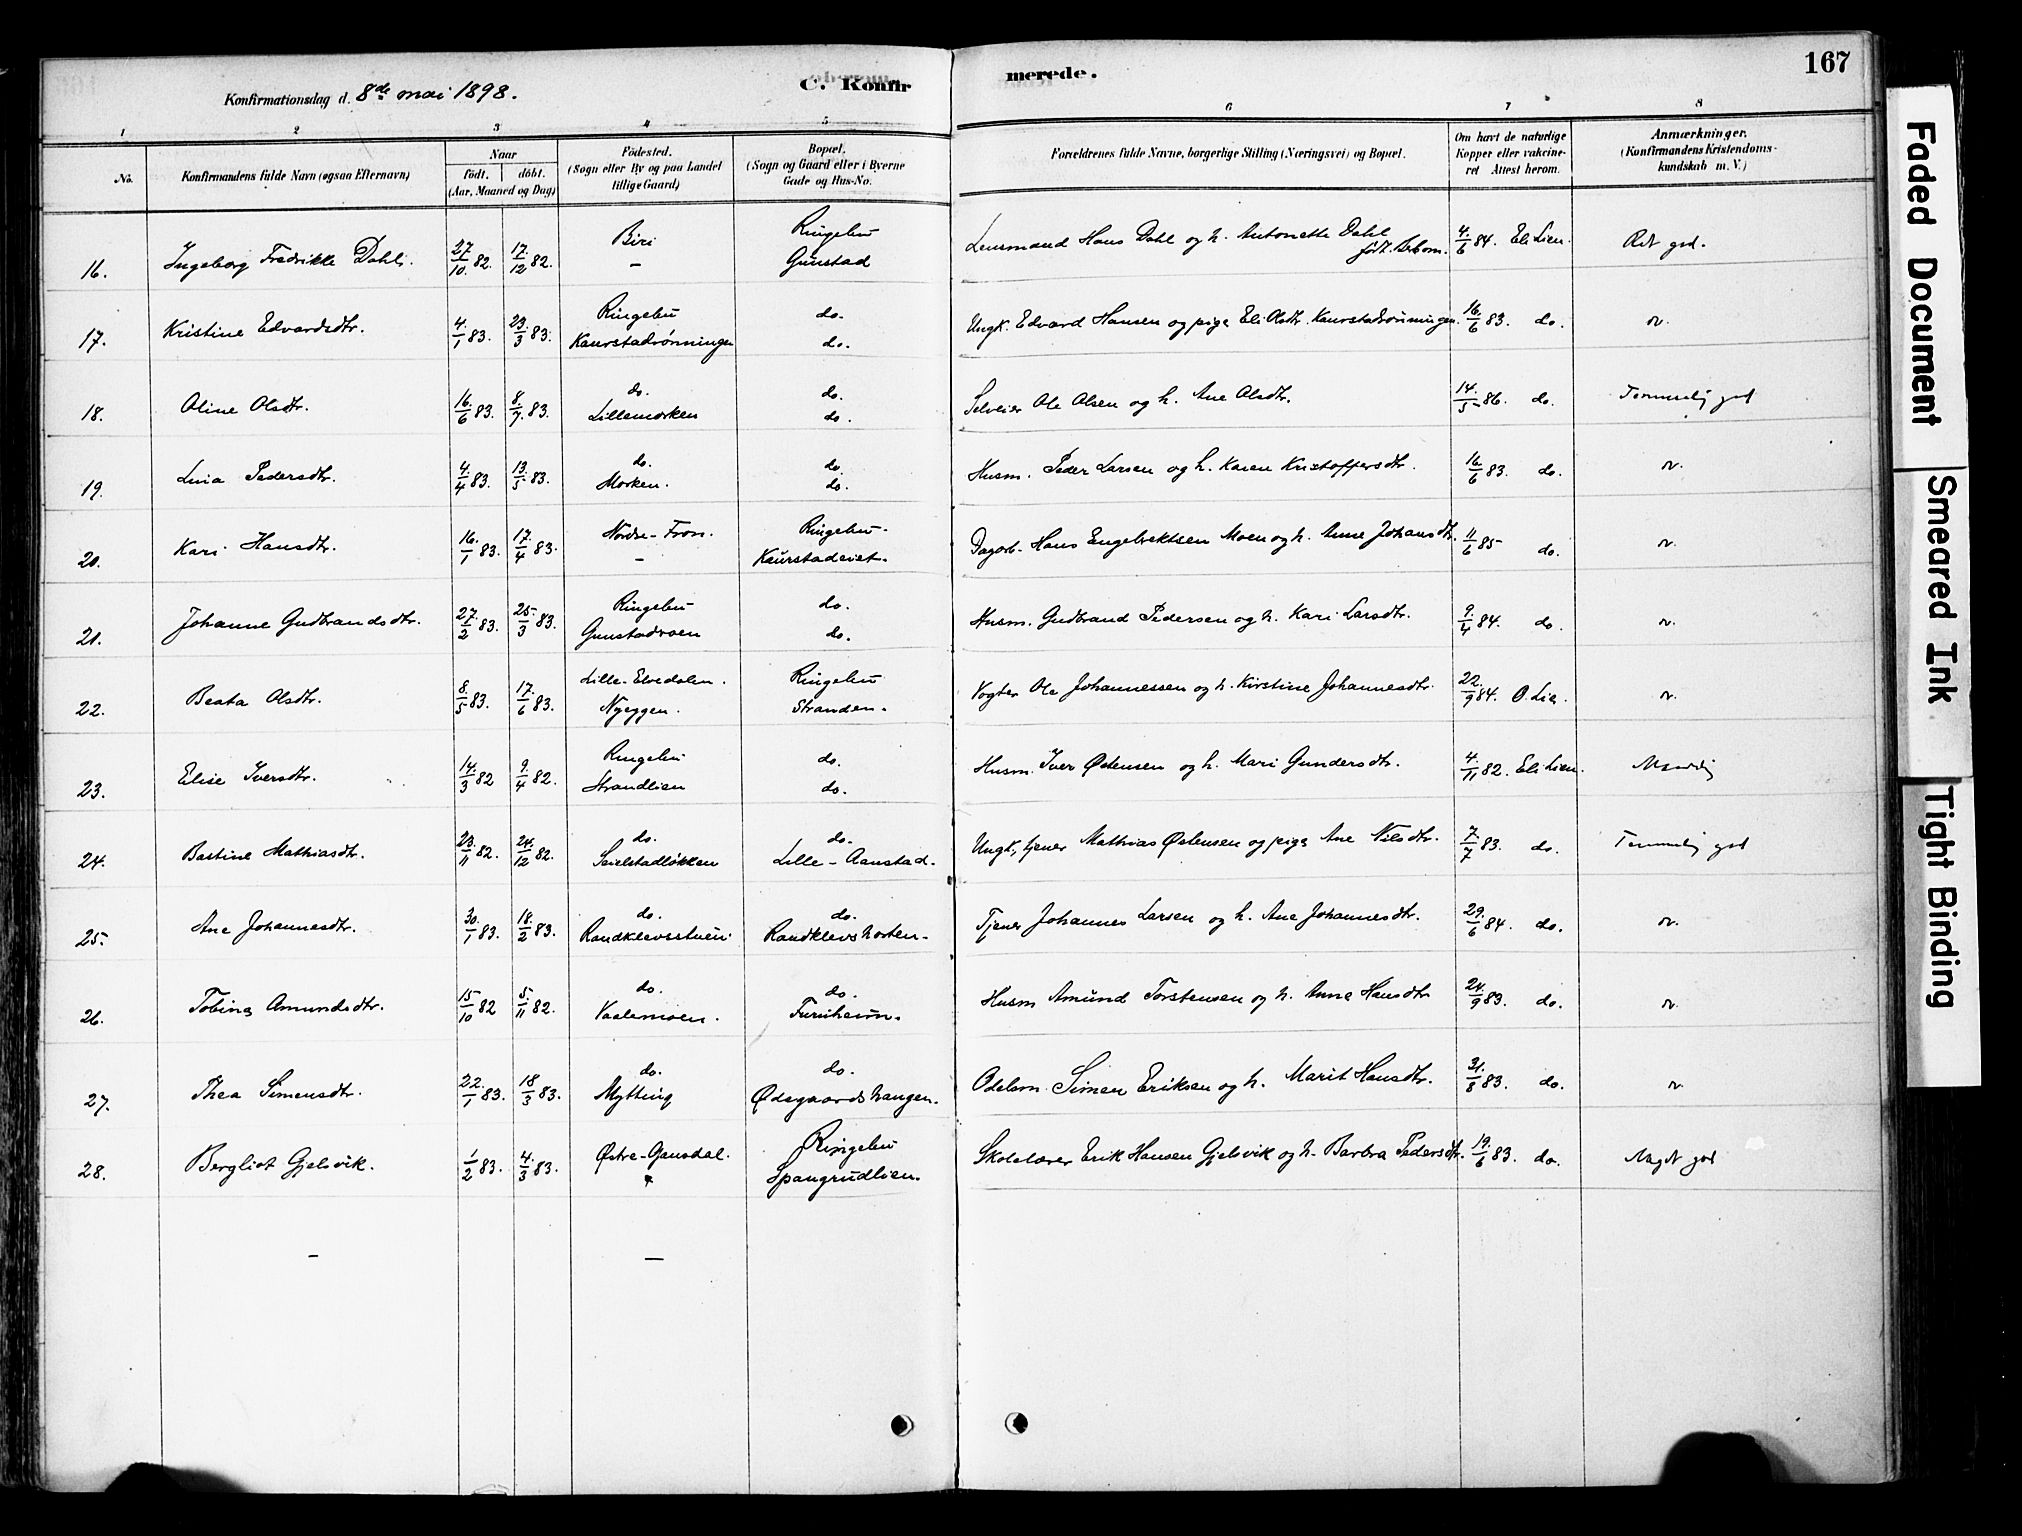 167
C. Konfirmerede.
Konfirmationsdag d. 8de mai 1898.
1 2 3 4 5 6 7 8
No. Konfirmandens fulde Navn (ogsaa Efternavn) Naar født. døbt. (Aar, Maaned og Dag) Fødested. (Sogn eller By og paa Landet tillige Gaard) Bopæl. (Sogn og Gaard eller i Byerne Gade og Hus-No. Forældrenes fulde Navne, borgerlige Stilling (Næringsvei) og Bopæl. Om havt de naturlige Kopper eller vakcineret Attest herom. Anmærkninger. (Konfirmandens Kristendomskundskab m. V.)
16. Ingeborg Fredrikke Dahl. 27/10 82. 17/12 82. Biri – Ringebu Gunstad Lensmand Hans Dahl og h. Antonette Dahl født 4/6 84. Eli Lien. Ret god.
17. Kristine Edvardsdtr. 4/1 83. 23/3 83. Ringebu Kaurstadrønningen do. do. Ungk. Edvard Hansen og pige Eli Olsdtr. Kaurstadrønningen. 16/6 83. do. "
18. Oline Olsdtr. 16/6 83. 8/7 83. do. Lillemorken do. do. Selveier Ole Olsen og h. Ane Olsdtr. 14/5 86. do. Temmelig god
19. Lina Pedersdtr. 4/4 83. 13/5 83. do. Morken. do. do. Husm. Peder Larsen og h. Karen Kristoffersdtr. 16/6 83. do. "
20. Kari Hansdtr. 16/1 83. 17/4 83. Nordre-Fron. – Ringebu. Kaurstadeiet. Dagarb. Hans Engebrektsen Moen og h. Anne Johansdtr. 11/6 85 do. "
21. Johanne Gudbrandsdtr. 27/2 83. 25/3 83. Ringebu Gunstadmoen do. do. Husm. Gudbrand Pedersen og h. Kari Larsdtr. 9/4 84. do. "
22. Beata Olsdtr. 8/5 83. 17/6 83. Lille-Elvedalen. Nyeggen. Ringebu Stranden. Vogter Ole Johannessen og h. Kirstine Johannesdtr. 22/9 84. O. Lien. "
23. Elise Iversdtr. 14/3 82 9/4 82. Ringebu Strandlien do. do. Husm. Iver Østensen og h. Mari Gundersdtr. 4/11 82. Eli Lien. Maadelig
24. Bastine Mathiasdtr. 23/11 82. 24/12 82. do. Seielstadløkken do. Lille-Aanstad. Ungk., tjener Mathias Østensen og pige Ane Nilsdtr. 7/7 83. do. Temmelig god
25. Ane Johannesdtr. 30/1 83. 18/2 83. do. Randklevsstuen. do. Randklevshorten. Tjener Johannes Larsen og h. Ane Johannesdtr. 29/6 84. do. "
26. Tobina Amundsdtr. 15/10 82 5/11 82. do. Vaalemoen. do. Furuheim. Husm Amund Torstensen og h. Anne Hansdtr 24/9 83. do. "
27. Thea Simensdtr. 22/1 83. 18/3 83. do. Mytting do. Ødegaardshaugen. Odelsm. Simen Eriksen og h. Marit Hansdtr. 31/8 83. do. "
28. Bergliot Gjelsvik. 1/2 83. 4/3 83. Østre-Gausdal. Ringebu Spangrudlien. Skolelærer Erik Hansen Gjelsvik og h. Barbra Pedersdtr. 19/6 83. do. Meget god
Faded Document
Smeared Ink
Tight Binding